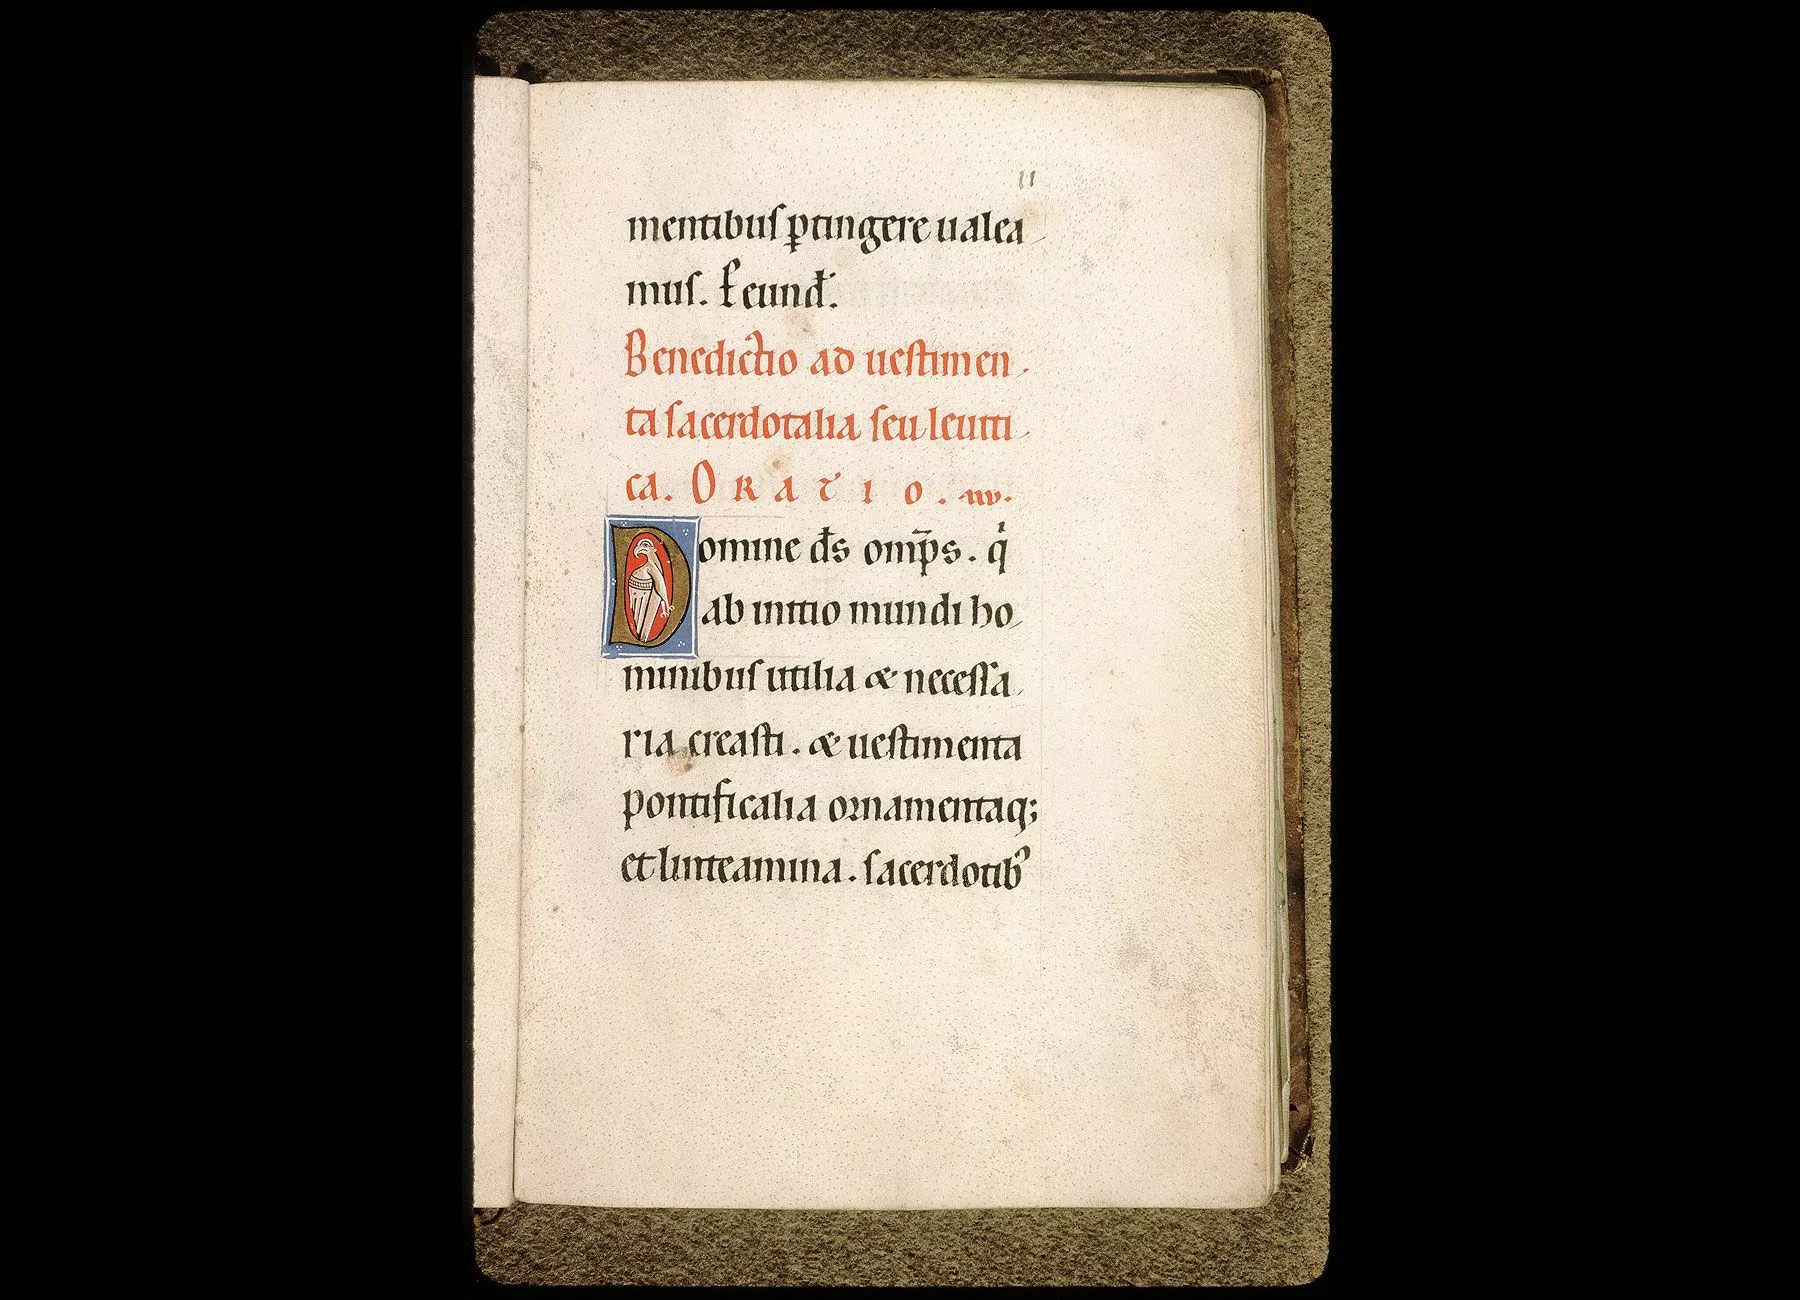 11
mentibuſ p̲tingere ualea
muſ. ꝑ eund̄.
Benedictio ad ueſtimen
ta ſacerdotalia ſeu leuiti
ca. ORATIO.
Domine d̄s om̄p̄s. qͥ
ab initio mundi ho
minibuſ utilia & neceſſa
ria creaſti. & ueſtimenta
pontificalia ornamentaq;
et linteamina. ſacerdotibꝰ